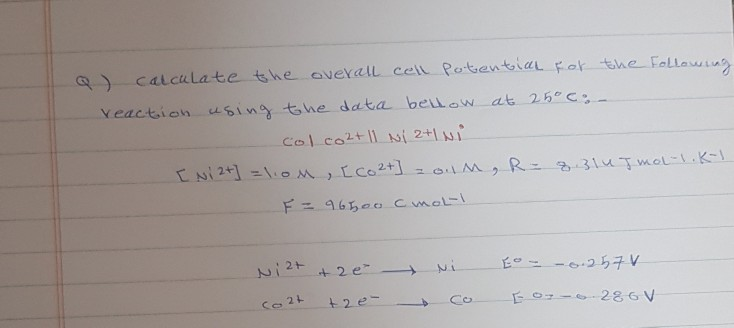 Q) Calculate the overall cell Potential For the Following
reaction using the data bellow at 25°C:-
Co | Co2+ || Ni 2+ | Ni
[Ni2+] = 1.0 M, [Co2+] = 0.1 M, R = 8.314 J mol-1. K-1
F = 96500 C mol-1
Ni2+ + 2e- → Ni E° = -0.257 V
Co2+ + 2e- → Co E°= -0.280 V